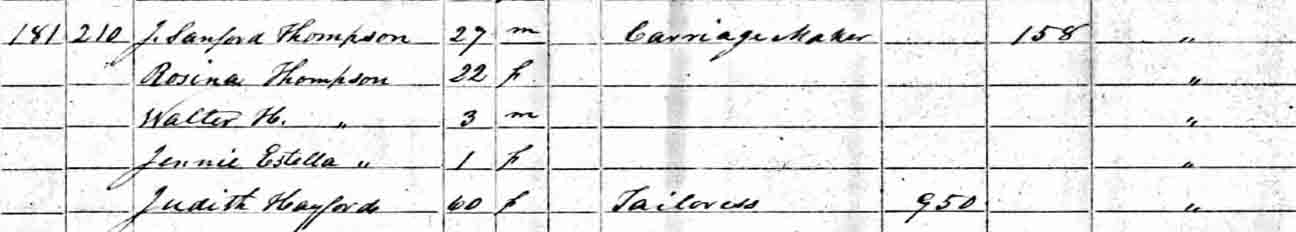 181 210 J. Sanford Thompson 27 m Carriage Maker 158 "
Rosina Thompson 22 f "
Walter H. " 3 m "
Jennie Estella " 1 f "
Judith Hayford 60 f Tailoress 950 "